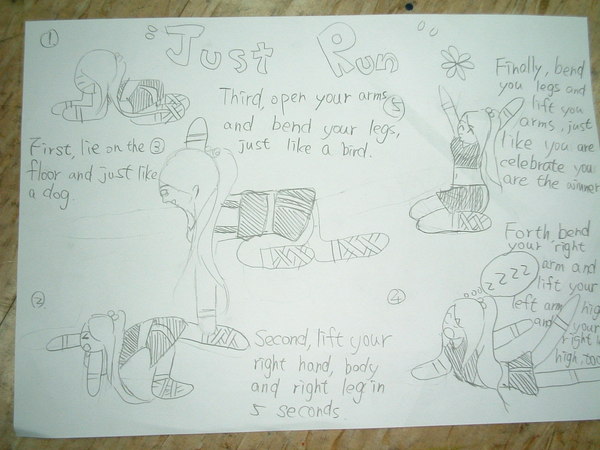 Just Run
①
First, lie on the
floor and just like
a dog.
②
Second, lift your
right hand, body
and right leg in
5 seconds.
③
Third, open your arms
and bend your legs,
just like a bird.
④
Forth, bend
your right
arm and
lift your
left arm high
and your
right leg
high, too.
zzzz
⑤
Finally, bend
you legs and
lift you
arms, just
like you are
celebrate you
are the winner